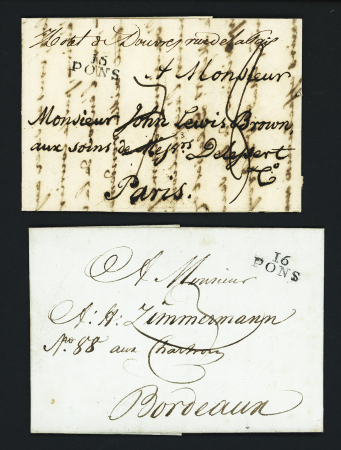 Hotel de Douvres rue de la Paix
15
PONS
A Monsieur
Monsieur John Lewis Brown
aux soins de Messrs Delessert
& Co
Paris.
16
PONS
A Monsieur
A: H: Zimmermann
No. 88 aux Chartrons
Bordeaux